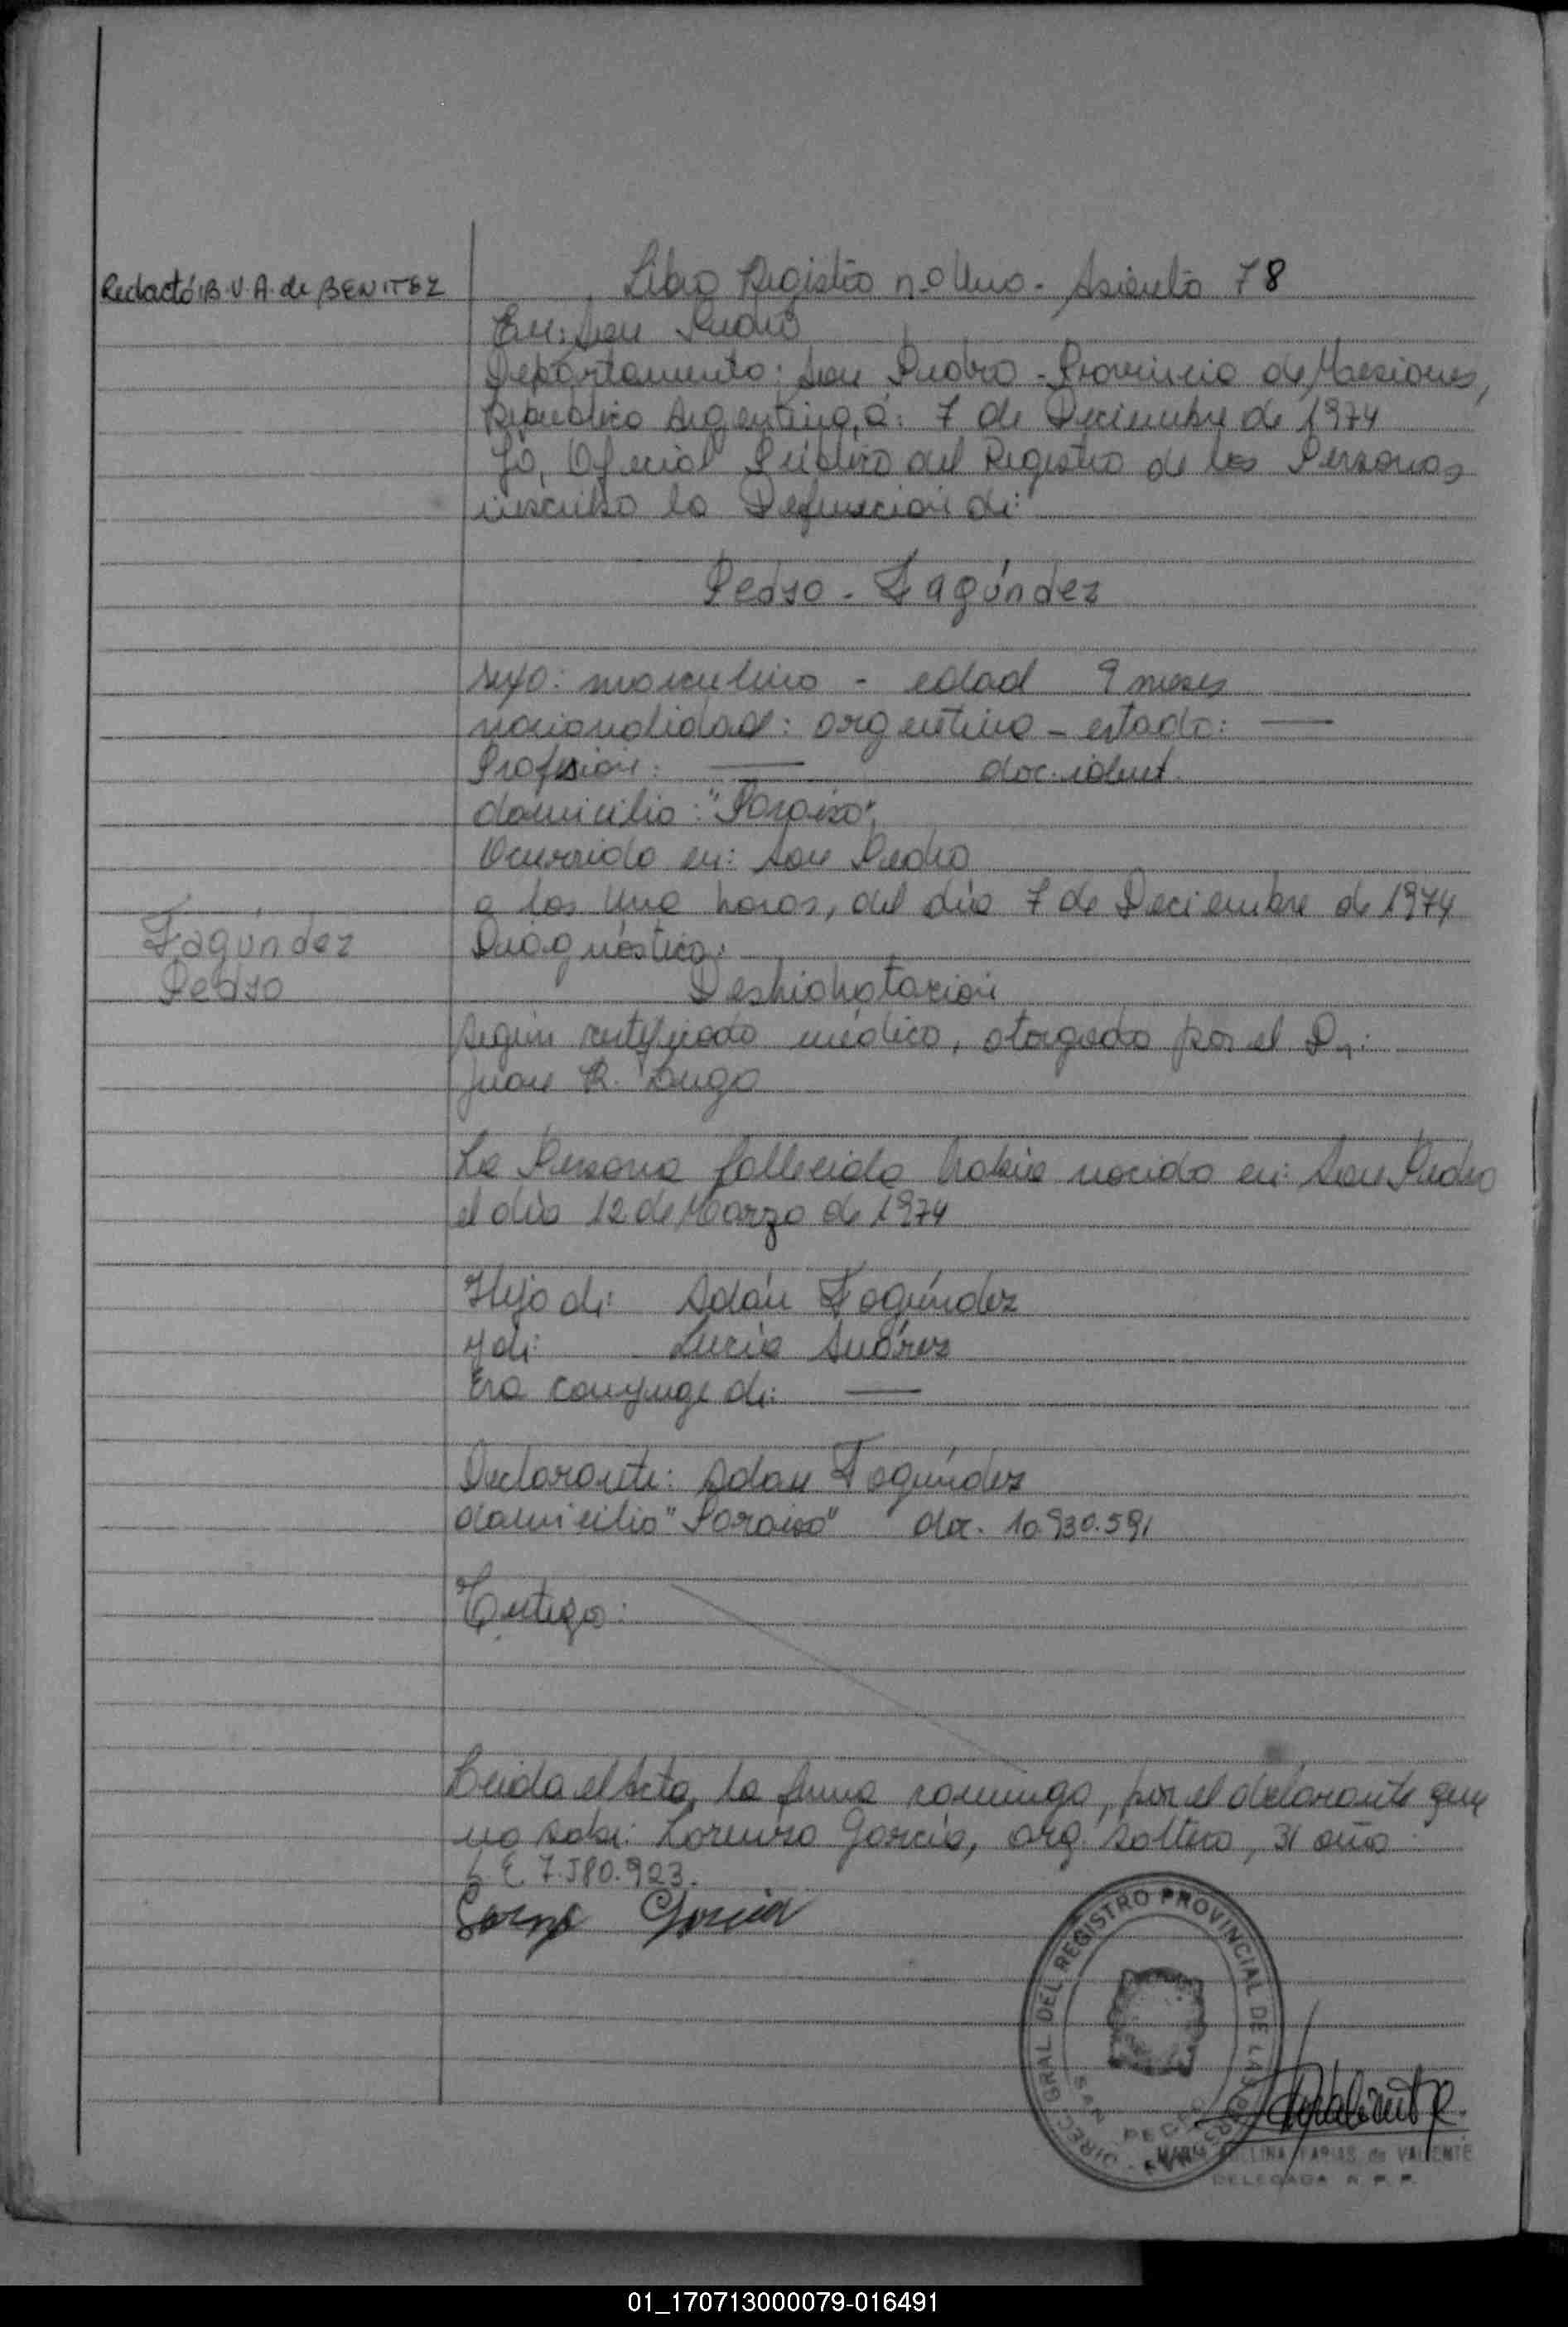 Redactó: B.V.A. de BENITEZ
Libro Registro nº Uno - Asiento 78
En: San Pedro
Departamento: San Pedro - Provincia de Misiones,
República Argentina, a: 7 de Diciembre de 1974
Yo, Oficial Público del Registro de las Personas
inscribo la Defunción de:
Pedro - Fagúndez
sexo: masculino - edad 9 meses
nacionalidad: argentino - estado: —
Profesión: — doc. ident.
domicilio: "Paraiso"
Ocurrido en: San Pedro
a las Una horas, del día 7 de Diciembre de 1974
Fagúndez
Pedro
Diagnóstico:
Deshidratación
según certificado médico, otorgado por el Dr:
Juan R. Lugo
La Persona fallecida había nacido en: San Pedro
el día 12 de Marzo de 1974
Hijo de: Adán Fagúndez
y de: Lucía Suárez
Era conyuge de: —
Declarante: Adan Fagúndez
domicilio "Paraiso" doc. 10.930.591
Testigo:
Leida el Acta, la firma conmigo, por el declarante que
no sabe: Lorenzo García, arg. soltero, 31 año
L.E. 7.580.923.
García
DIREC. GRAL. DEL REGISTRO PROVINCIAL DE LAS PERSONAS
SAN PEDRO
FARIAS de VALIENTE
DELEGADA R. P. P.
01_170713000079-016491